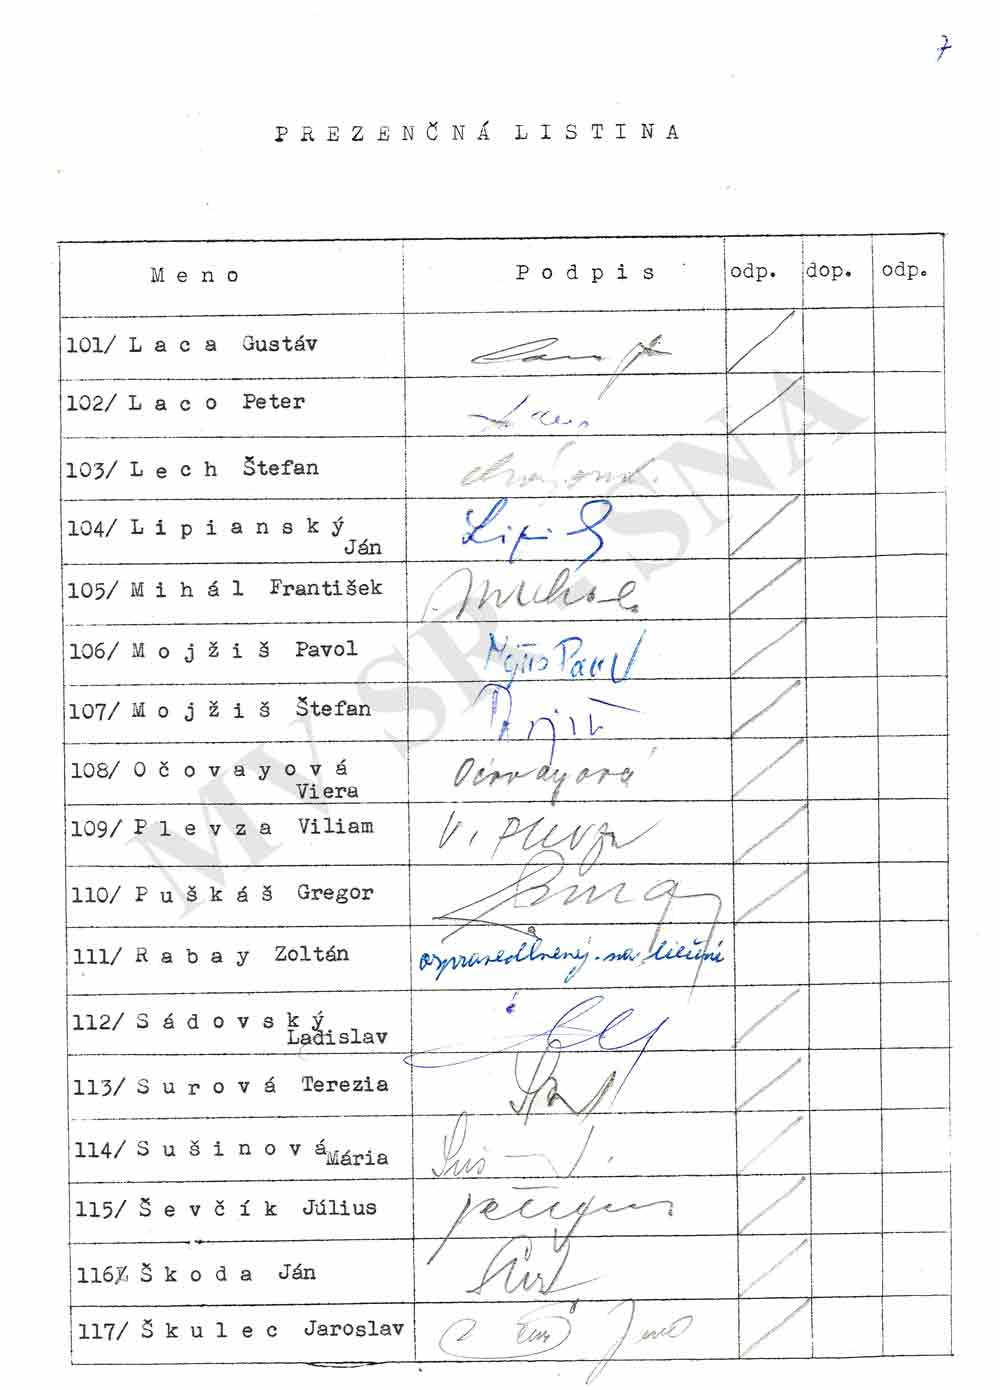 7
P R E Z E N Č N Á L I S T I N A
M e n o P o d p i s odp. dop. odp.
101/ L a c a Gustáv
102/ L a c o Peter
103/ L e c h Štefan
104/ L i p i a n s k ý
Ján
105/ M i h á l František
106/ M o j ž i š Pavol
107/ M o j ž i š Štefan
108/ O č o v a y o v á Očovayová
Viera
109/ P l e v z a Viliam V. Plevza
110/ P u š k á š Gregor
111/ R a b a y Zoltán ospravedlnený - na liečení
112/ S á d o v s k ý
Ladislav
113/ S u r o v á Terezia
114/ S u š i n o v á
Mária
115/ Š e v č í k Július
116/ Š k o d a Ján
117/ Š k u l e c Jaroslav
MV SR - SNA